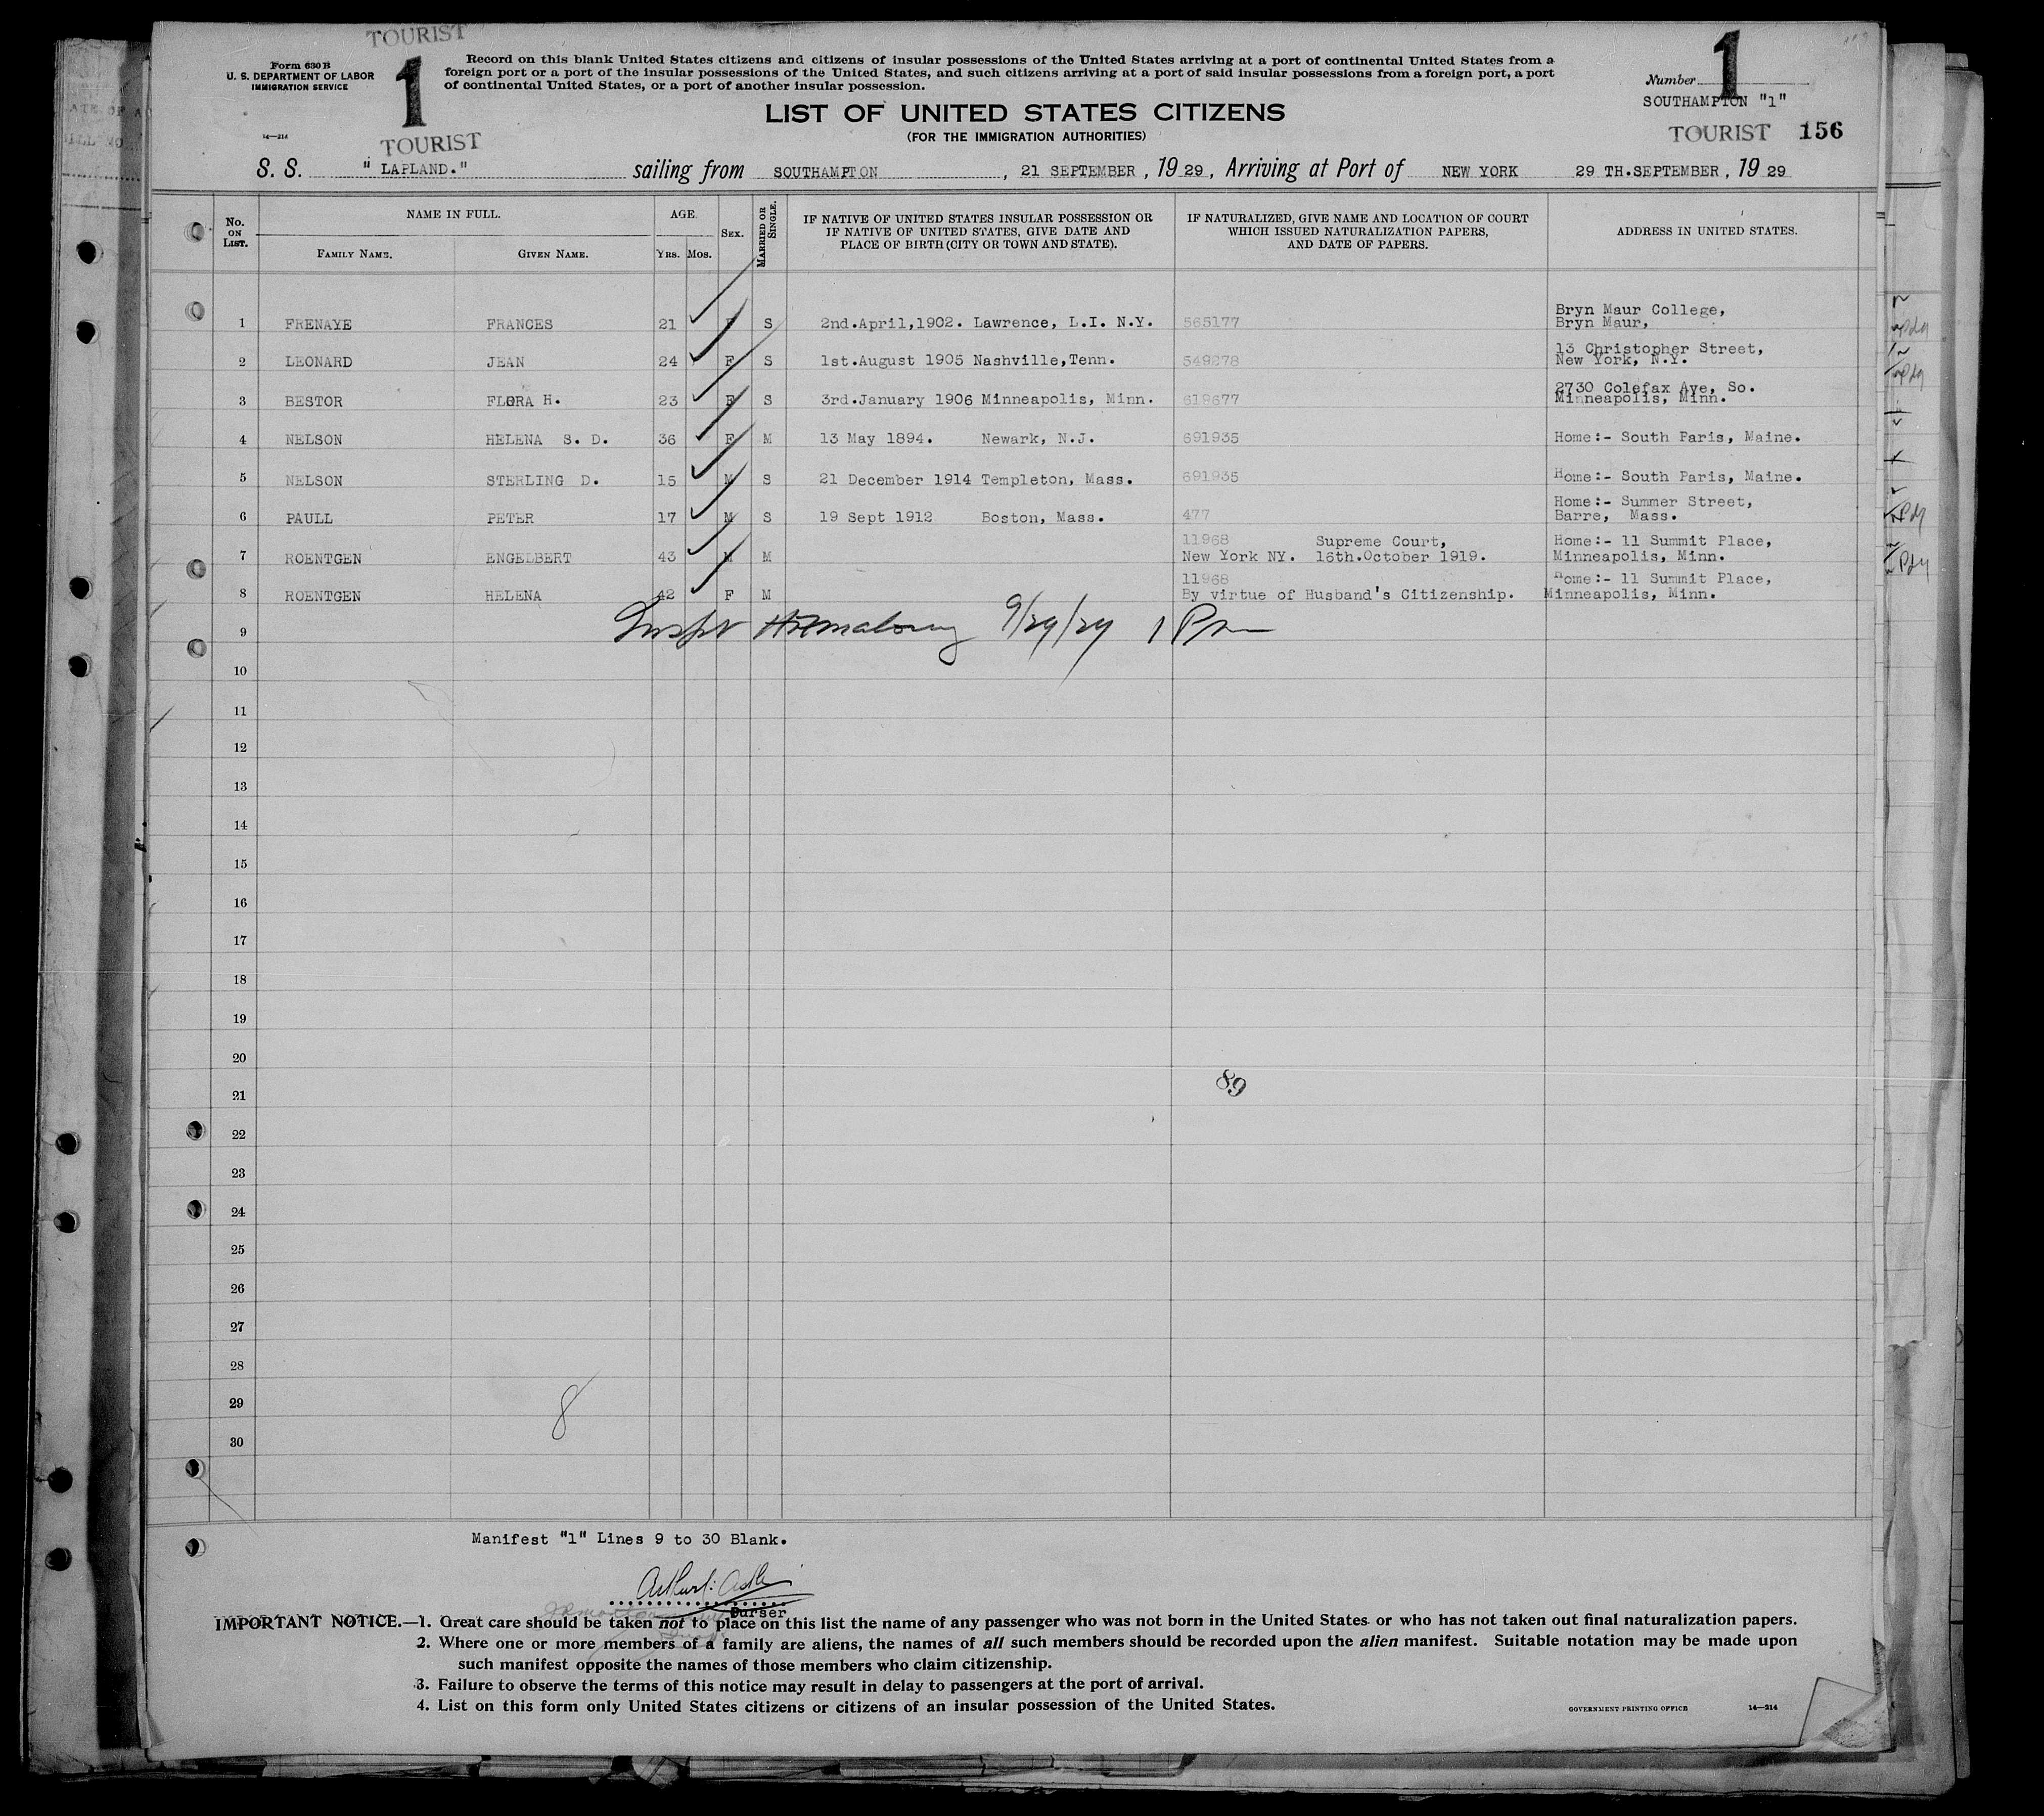 TOURIST
Form 630 B
U. S. DEPARTMENT OF LABOR
IMMIGRATION SERVICE
1
14—214
TOURIST
Record on this blank United States citizens and citizens of insular possessions of the United States arriving at a port of continental United States from a
foreign port or a port of the insular possessions of the United States, and such citizens arriving at a port of said insular possessions from a foreign port, a port
of continental United States, or a port of another insular possession.
LIST OF UNITED STATES CITIZENS
(FOR THE IMMIGRATION AUTHORITIES)
Number 1
SOUTHAMPTON "1"
TOURIST 156
S. S. "LAPLAND." sailing from SOUTHAMPTON, 21 SEPTEMBER, 1929, Arriving at Port of NEW YORK 29 TH.SEPTEMBER, 1929
No. ON LIST.
NAME IN FULL.
FAMILY NAME.
GIVEN NAME.
AGE.
YRS.
MOS.
SEX.
MARRIED OR SINGLE.
IF NATIVE OF UNITED STATES INSULAR POSSESSION OR
IF NATIVE OF UNITED STATES, GIVE DATE AND
PLACE OF BIRTH (CITY OR TOWN AND STATE).
IF NATURALIZED, GIVE NAME AND LOCATION OF COURT
WHICH ISSUED NATURALIZATION PAPERS,
AND DATE OF PAPERS.
ADDRESS IN UNITED STATES.
1 FRENAYE FRANCES 21 F S 2nd.April,1902. Lawrence, L.I. N.Y. 565177 Bryn Maur College,
Bryn Maur,
2 LEONARD JEAN 24 F S 1st.August 1905 Nashville,Tenn. 549278 13 Christopher Street,
New York, N.Y.
3 BESTOR FLORA H. 23 F S 3rd.January 1906 Minneapolis, Minn. 619677 2730 Colefax Ave, So.
Minneapolis, Minn.
4 NELSON HELENA S. D. 36 F M 13 May 1894. Newark, N.J. 691935 Home:- South Paris, Maine.
5 NELSON STERLING D. 15 M S 21 December 1914 Templeton, Mass. 691935 Home:- South Paris, Maine.
6 PAULL PETER 17 M S 19 Sept 1912 Boston, Mass. 477 Home:- Summer Street,
Barre, Mass.
7 ROENTGEN ENGELBERT 43 M M 11968 Supreme Court, Home:- 11 Summit Place,
New York NY. 16th.October 1919. Minneapolis, Minn.
8 ROENTGEN HELENA 42 F M 11968 Home:- 11 Summit Place,
By virtue of Husband's Citizenship. Minneapolis, Minn.
9 Inspr 9/29/29 1 Pm
10
11
12
13
14
15
16
17
18
19
20
21
89
22
23
24
25
26
27
28
29
8
30
Manifest "1" Lines 9 to 30 Blank.
Purser
IMPORTANT NOTICE.—1. Great care should be taken not to place on this list the name of any passenger who was not born in the United States or who has not taken out final naturalization papers.
2. Where one or more members of a family are aliens, the names of all such members should be recorded upon the alien manifest. Suitable notation may be made upon
such manifest opposite the names of those members who claim citizenship.
3. Failure to observe the terms of this notice may result in delay to passengers at the port of arrival.
4. List on this form only United States citizens or citizens of an insular possession of the United States.
GOVERNMENT PRINTING OFFICE 14—214